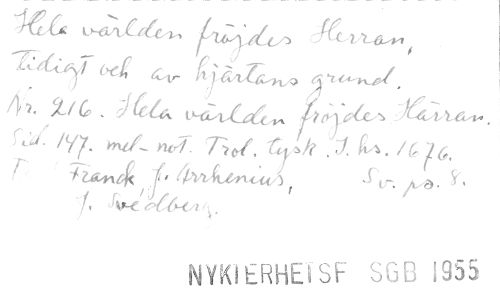 Hela världen fröjdes Herran,
tidigt och av hjärtans grund.
Nr. 216. Hela världen fröjdes Härran.
Sid. 147. mel-not. Trol. tysk. I hs. 1676.
Franck, J. Arrhenius, Sv. ps. 8.
J. Svedberg.
NYKTERHETSF SGB 1955